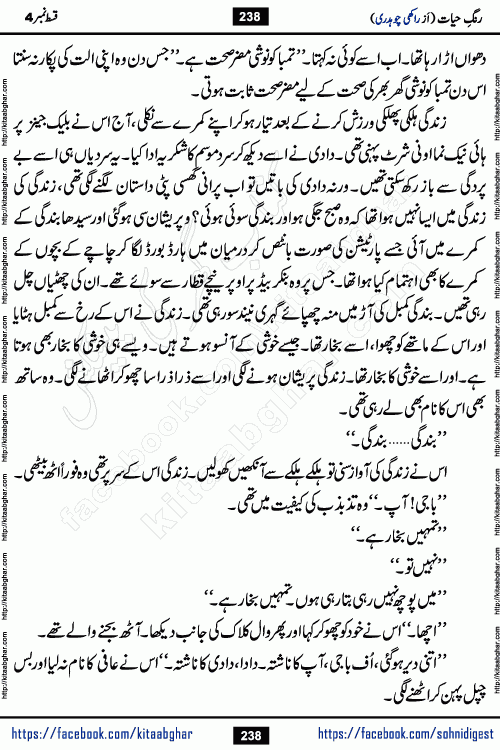 رنگِ حیات (از راکھی چوہدری)
238
قسط نمبر 4
دھواں اڑا رہا تھا۔ اب اسے کوئی نہ کہتا۔ ’’تمباکو نوشی مضر صحت ہے۔‘‘ جس دن وہ اپنی الٹ کی پکار نہ سنتا
اس دن تمباکو نوشی گھر بھر کی صحت کے لیے مضر صحت ثابت ہوتی۔
زندگی ہلکی پھلکی ورزش کرنے کے بعد تیار ہو کر اپنے کمرے سے نکلی، آج اس نے بلیک جینز پر
ہائی نیک نما اونی شرٹ پہنی تھی۔ دادی نے اسے دیکھ کر سرد موسم کا شکریہ ادا کیا۔ یہ سردیاں ہی اسے بے
پردگی سے باز رکھ سکتی تھیں۔ ورنہ دادی کی باتیں تو اب پرانی گھسی پٹی داستان لگنے لگی تھی، زندگی کی
زندگی میں ایسا نہیں ہوا تھا کہ وہ صبح جگی ہو اور بندگی سوئی ہوئی؟ وہ پریشان سی ہو گئی اور سیدھا بندگی کے
کمرے میں آئی جسے پارٹیشن کی صورت بانٹ کر درمیان میں ہارڈ بورڈ لگا کر چاچے کے بچوں کے
کمرے کا بھی اہتمام کیا ہوا تھا۔ جس پر وہ بنکر بیڈ پر اوپر نیچے قطار سے سوئے تھے۔ ان کی چھٹیاں چل
رہی تھیں۔ بندگی کمبل کی آڑ میں منہ چھپائے گہری نیند سو رہی تھی۔ زندگی نے اس کے رخ سے کمبل ہٹایا
اور اس کے ماتھے کو چھوا، اسے بخار تھا۔ جیسے خوشی کے آنسو ہوتے ہیں۔ ویسے ہی خوشی کا بخار بھی ہوتا
ہے۔ اور اسے خوشی کا بخار تھا۔ زندگی پریشان ہونے لگی اور اسے ذرا ذرا سا چھو کر اٹھانے لگی۔ وہ ساتھ
بھی اس کا نام بھی لے رہی تھی۔
’’بندگی...... بندگی۔‘‘
اس نے زندگی کی آواز سنی تو ہلکے ہلکے سے آنکھیں کھولیں۔ زندگی اس کے سر پر تھی وہ فوراً اٹھ بیٹھی۔
’’باجی! آپ۔‘‘ وہ تذبذب کی کیفیت میں تھی۔
’’تمہیں بخار ہے۔‘‘
’’نہیں تو۔‘‘
’’میں پوچھ نہیں رہی بتا رہی ہوں۔ تمہیں بخار ہے۔‘‘
’’اچھا۔‘‘ اس نے خود کو چھو کر کہا اور پھر وال کلاک کی جانب دیکھا۔ آٹھ بجنے والے تھے۔
’’اتنی دیر ہو گئی، اُف باجی، آپ کا ناشتہ۔ دادا، دادی کا ناشتہ۔‘‘ اس نے عافی کا نام نہ لیا اور بس
چپل پہن کر اٹھنے لگی۔
https://facebook.com/kitaabghar
238
https://facebook.com/sohnidigest
http://kitaabghar.com
facebook.com/kitaabghar